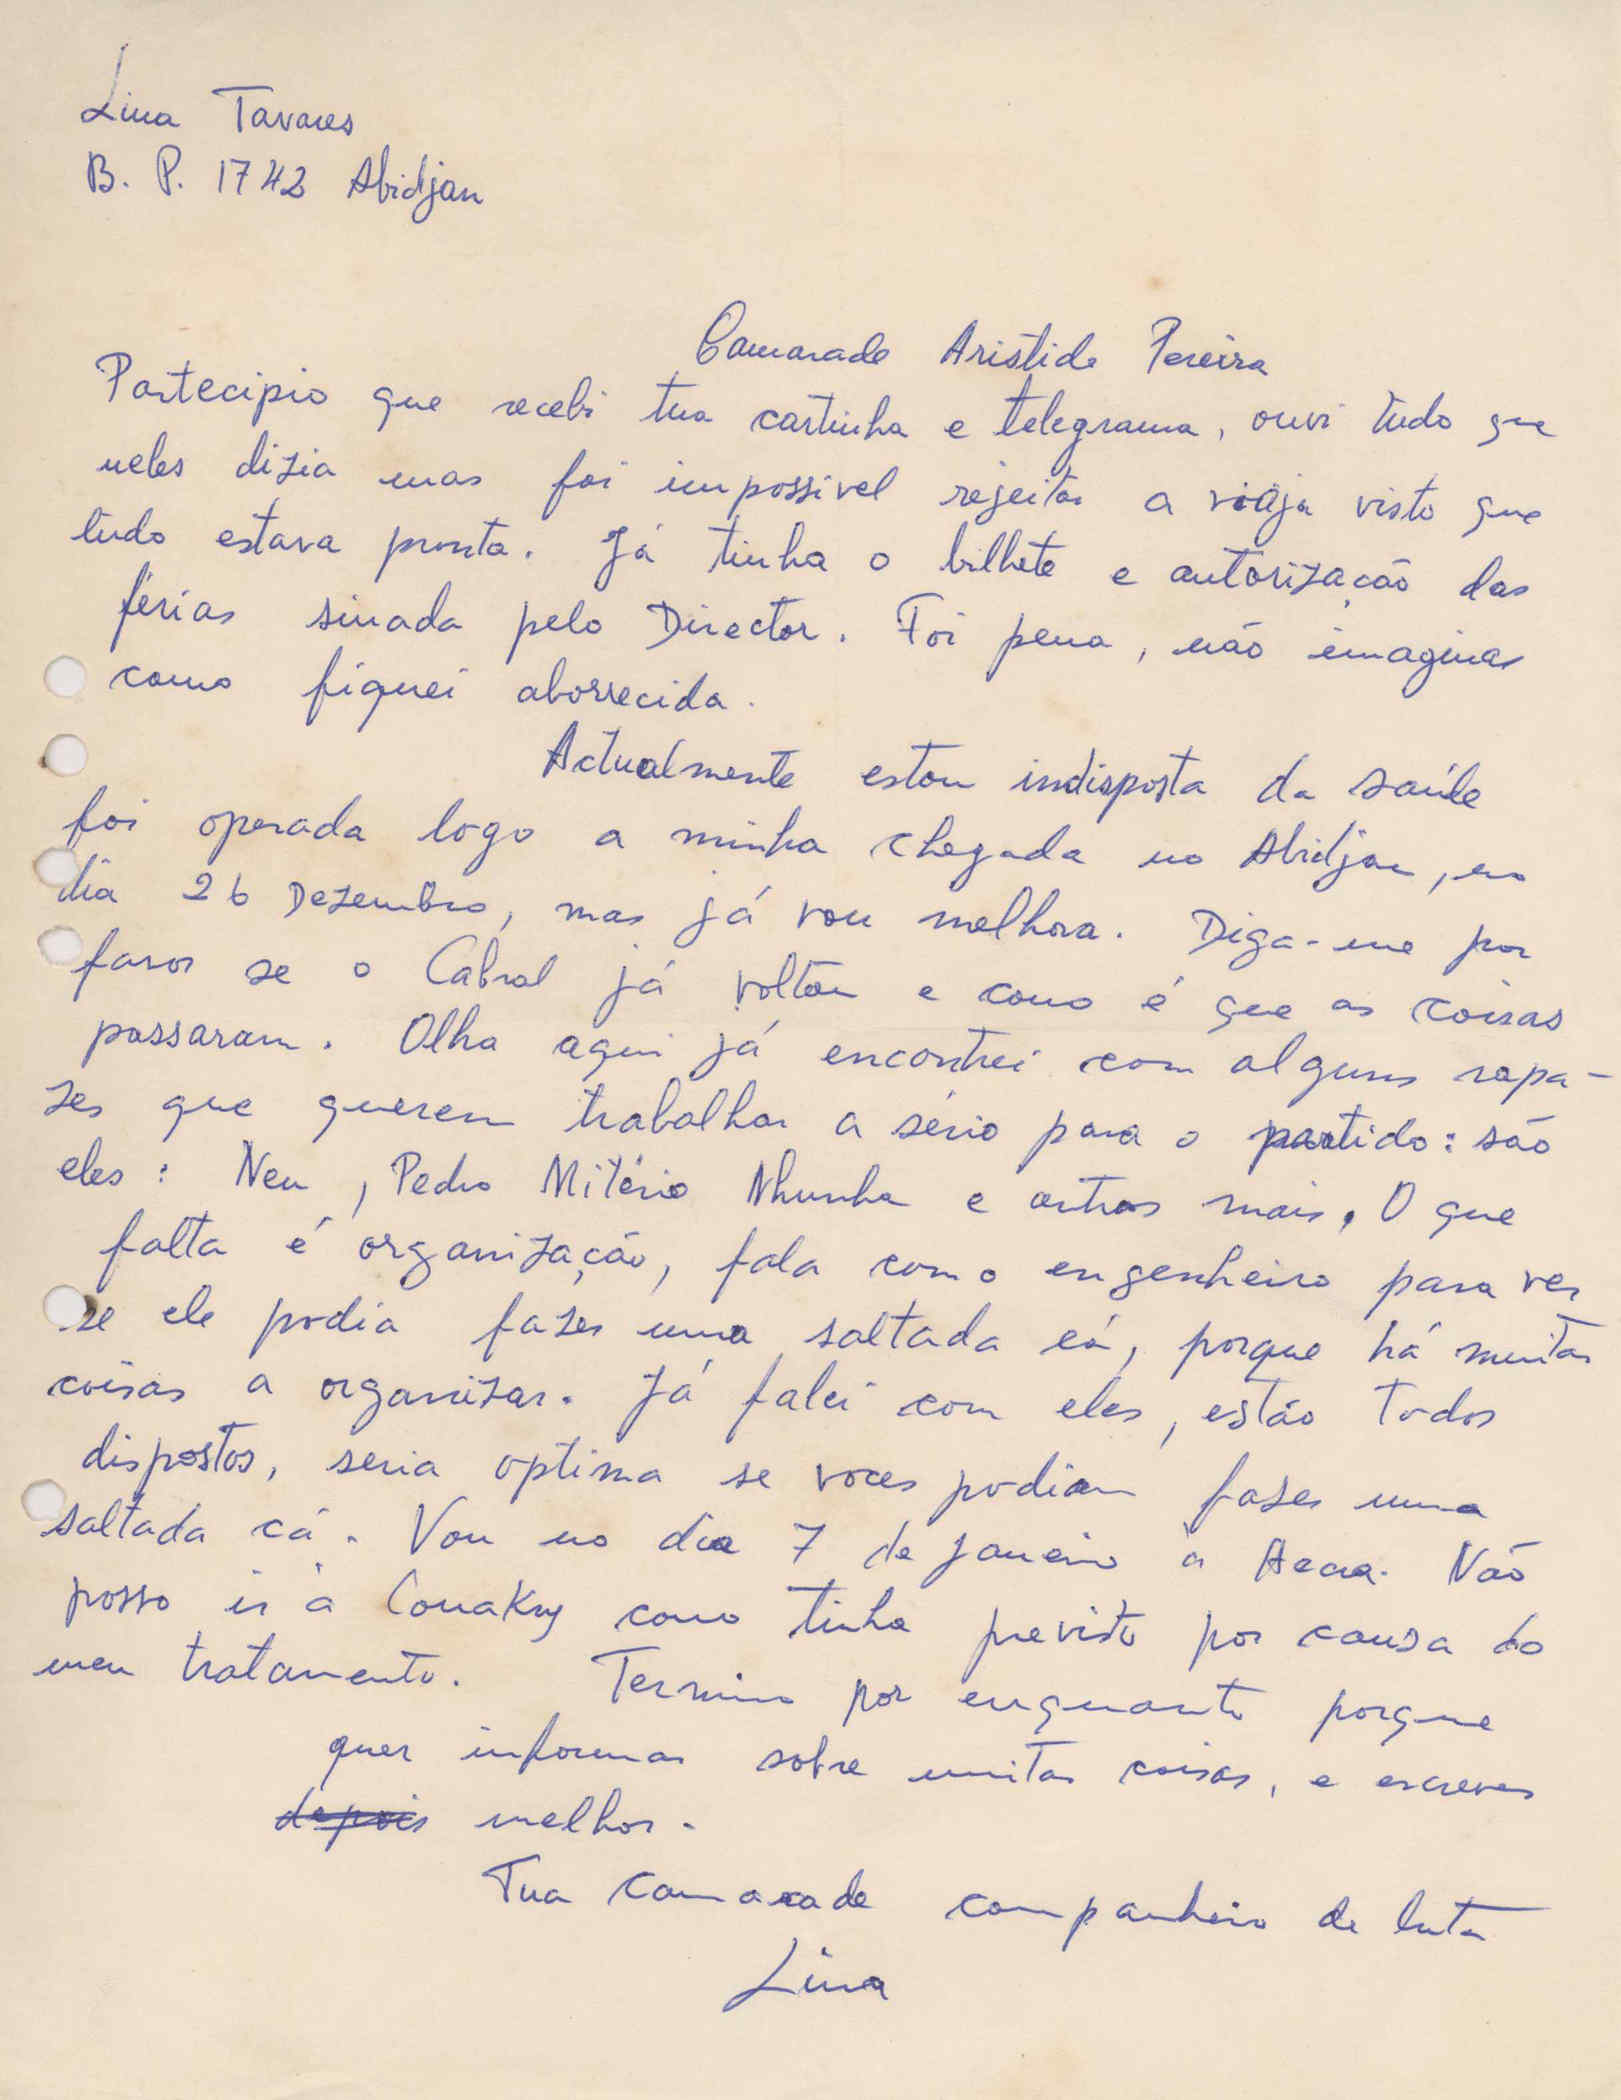 Lina Tavares
B. P. 1742 Abidjan
Camarade Aristide Pereira
Partecipio que recebi tua cartinha e telegrama, ouvi tudo que
neles dizia mas foi impossivel rejeitar a viaja visto que
tudo estava pronta. Já tinha o bilhete e autorização das
férias sinada pelo Director. Foi pena, não imaginas
como fiquei aborrecida.
Actualmente estou indisposta da saúde
foi operada logo a minha chegada no Abidjan, no
dia 26 Dezembro, mas já vou melhora. Diga-me por
favor se o Cabral já voltou e como é que as coisas
passaram. Olha aqui já encontrei com alguns rapa-
zes que querem trabalhar a sério para o partido: são
eles: Neu, Pedro Mitério Nhunha e outros mais. O que
falta é organização, fala com o engenheiro para ver
se ele podia fazer uma saltada cá, porque há muitas
coisas a organizar. Já falei com eles, estão todos
dispostos, seria optima se voces podiam fazer uma
saltada cá. Vou no dia 7 de janeiro à Accra. Não
posso ir à Conakry como tinha previsto por causa do
meu tratamento. Termino por enquanto porque
quer informar sobre muitas coisas, e escrever
depois melhor.
Tua camarade companheiro de luta
Lina